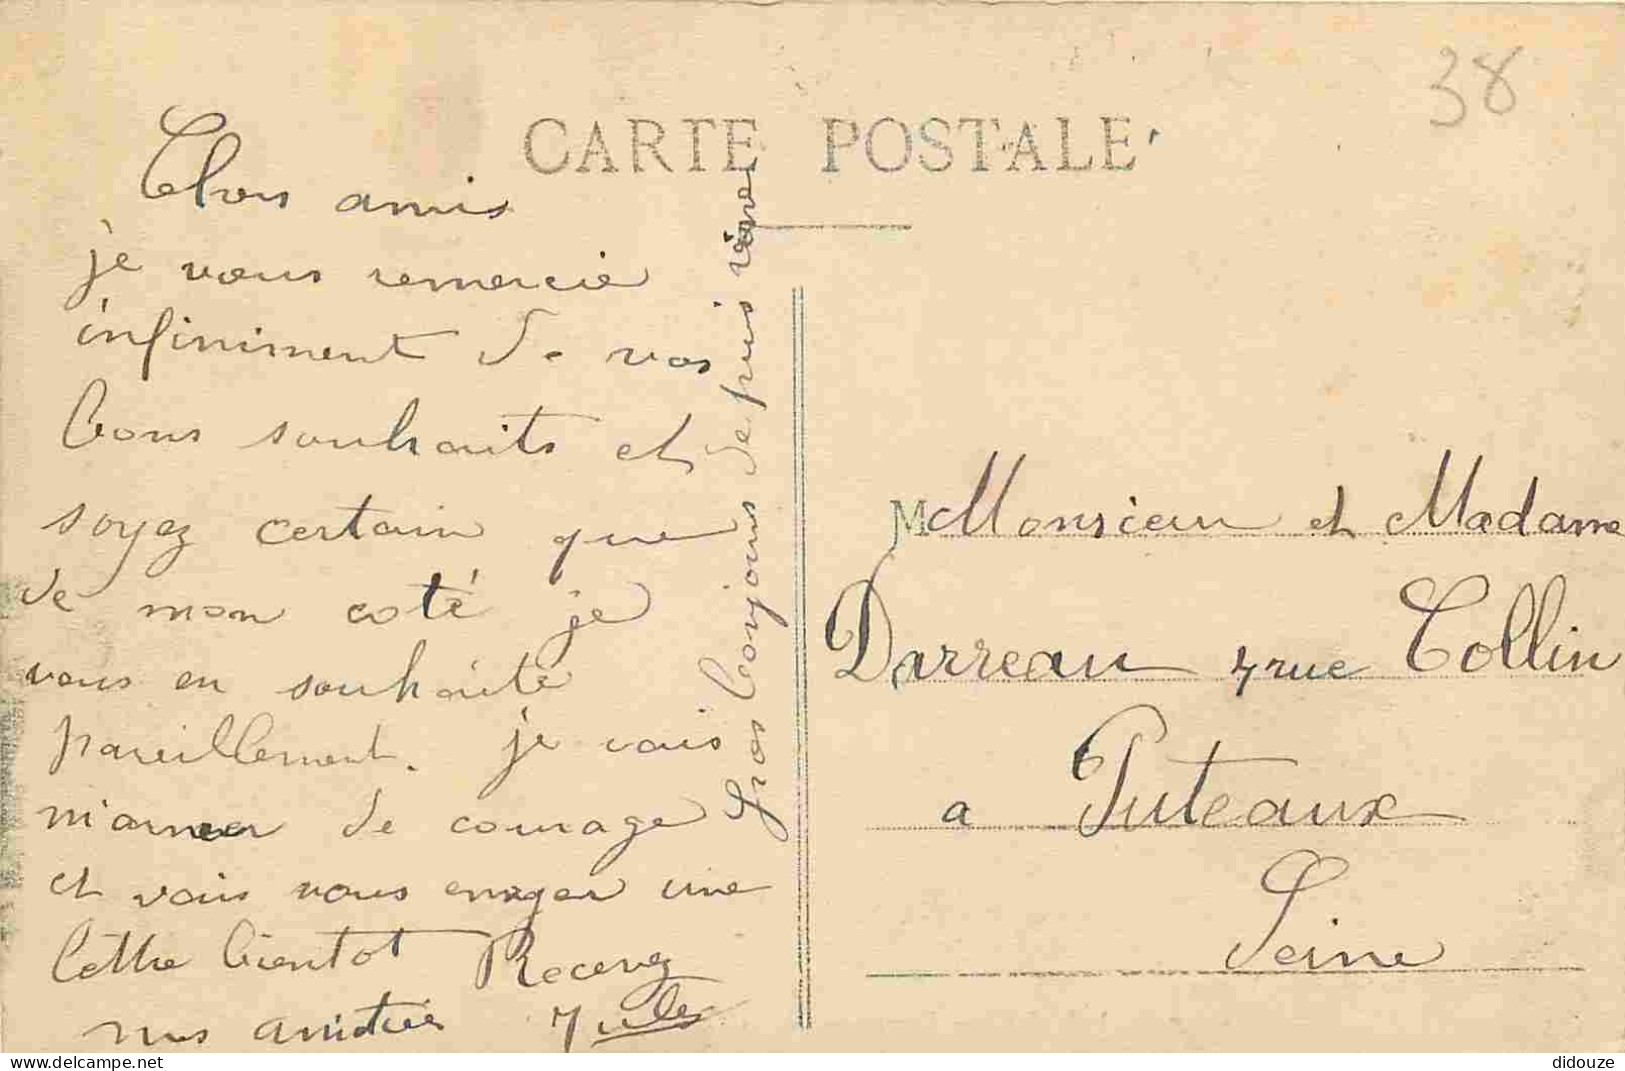 38
CARTE POSTALE
Chers amis
je vous remercie
infiniment de vos
bons souhaits et
soyez certain que
de mon coté je
vous en souhaite
pareillement. je vais
m'armer de courage
et vais vous envoyer une
lettre bientot Recevez
nos amitiés Jules
gros bonjours de puis
M Monsieur et Madame
Darreau 4 rue Collin
a Puteaux
Seine
didouze